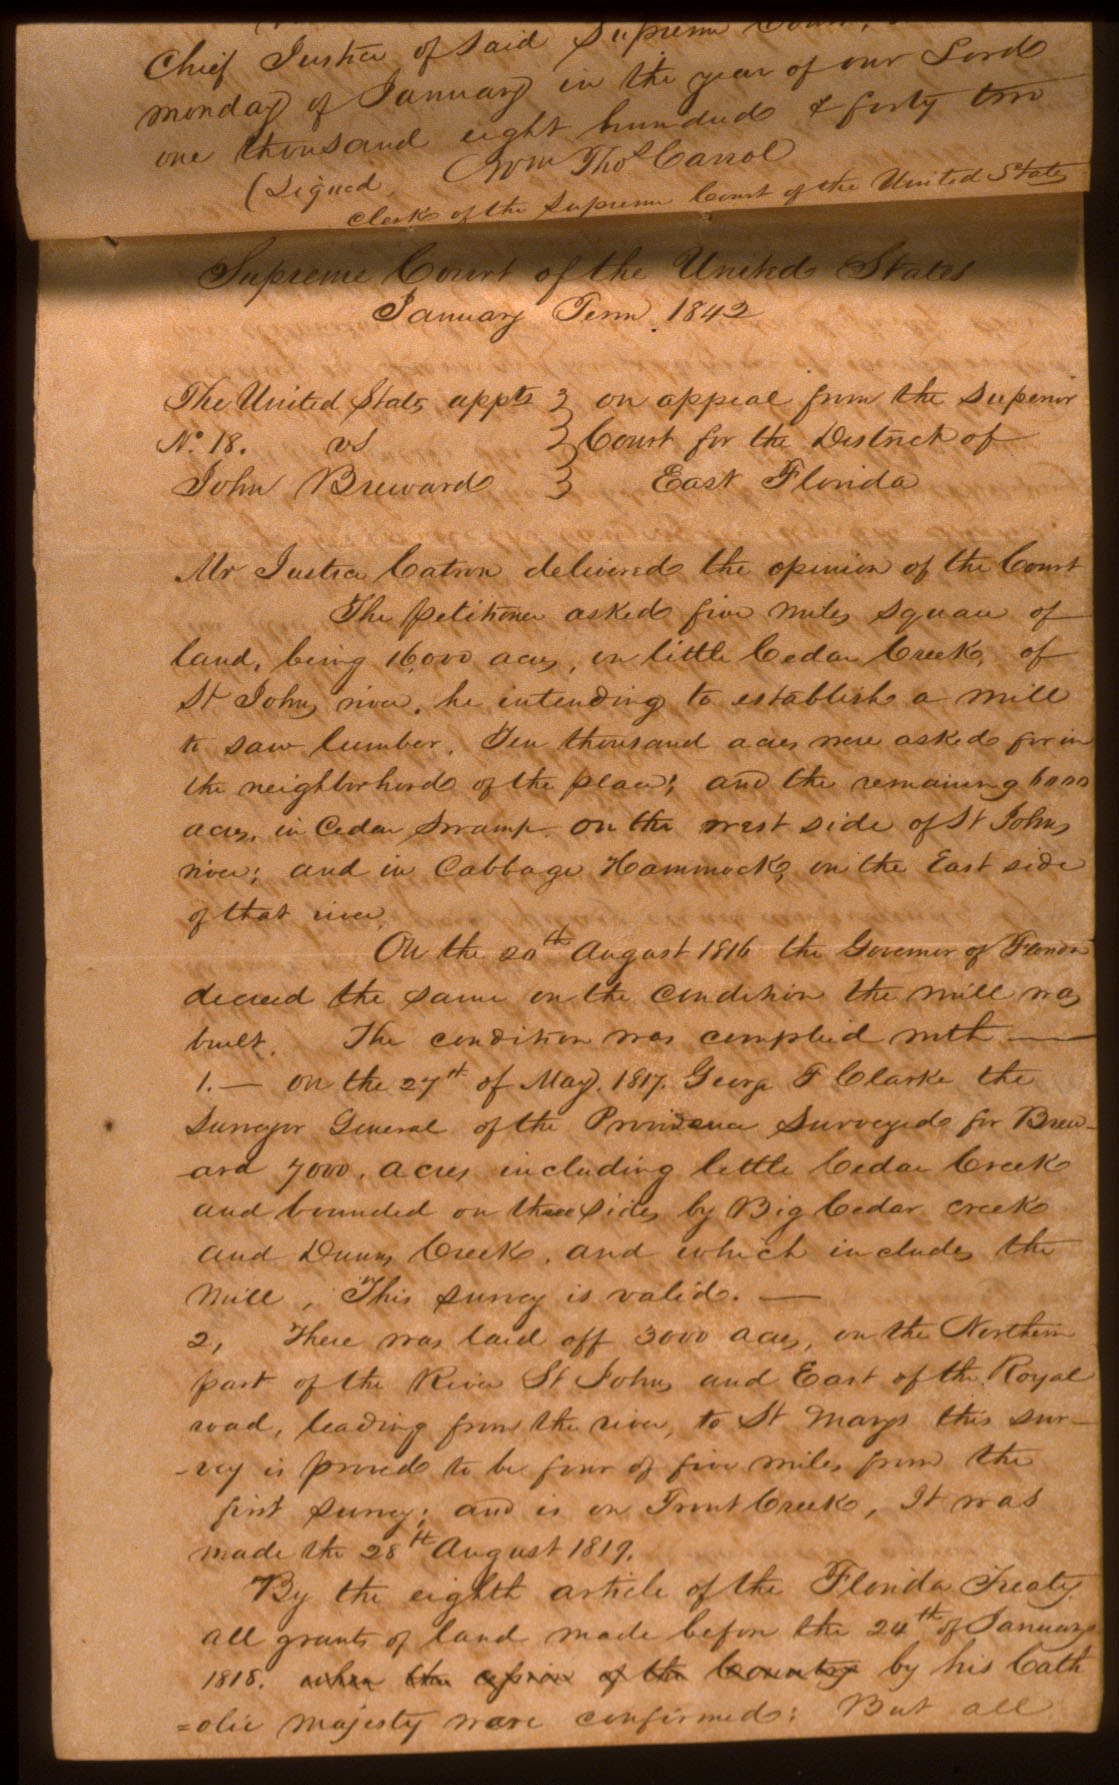 Chief Justice of said Supreme Court,
monday of January in the year of our Lord
one thousand eight hundred & forty two
(Signed Wm Thos Carrol
Clerk of the Supreme Court of the United States
Supreme Court of the United States
January Term, 1842
The United States appts } on appeal from the Superior
No. 18. vs } Court for the District of
John Breward } East Florida
Mr Justice Catron delivered the opinion of the Court
The petitioner asked five miles square of
land, being 16,000 acres, on little Cedar Creek, of
St Johns river, he intending to establish a mill
to saw lumber. Ten thousand acres were asked for in
the neighborhood of the place; and the remaining 6000
acres, in Cedar Swamp on the west side of St Johns
river; and in Cabbage Hammock, on the East side
of that river
On the 20th August 1816 the Governor of Florida
decreed the same on the condition the mill was
built. The condition was complied with —
1. — on the 27th of May. 1817. George F Clarke the
Surveyor General of the Providence surveyed for Brew-
-ard 7000. acres including little Cedar Creek
and bounded on three sides by Big Cedar creek
and Dunns Creek, and which includes the
Mill, This survey is valid. —
2, There was laid off 3000 acres, on the Northern
part of the River St Johns and East of the Royal
road, leading from the river, to St Marys this sur-
-vey is proved to be four of five miles from the
first survey; and is on Trout Creek, It was
made the 28th August 1819.
By the eighth article of the Florida Treaty
all grants of land made before the 24th of January
1818. when the cession of the Country by his Cath
=olic majesty were confirmed: But all